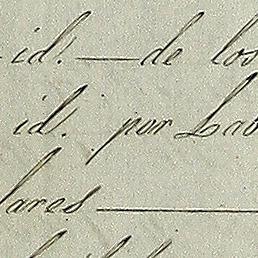 id. — de los
id. por Lab
lares —